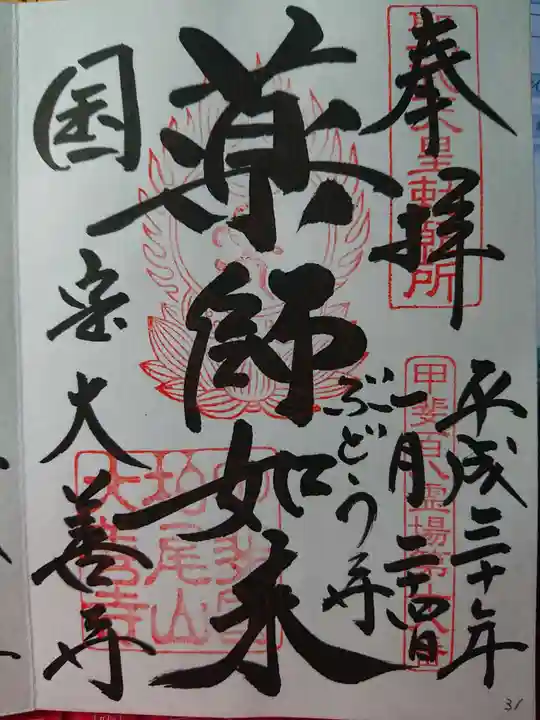 奉拝
平成三十年
一月二十四日
ぶどう寺
薬師如来
国宝大善寺
甲斐百八霊場第
柏尾山
大善寺
31